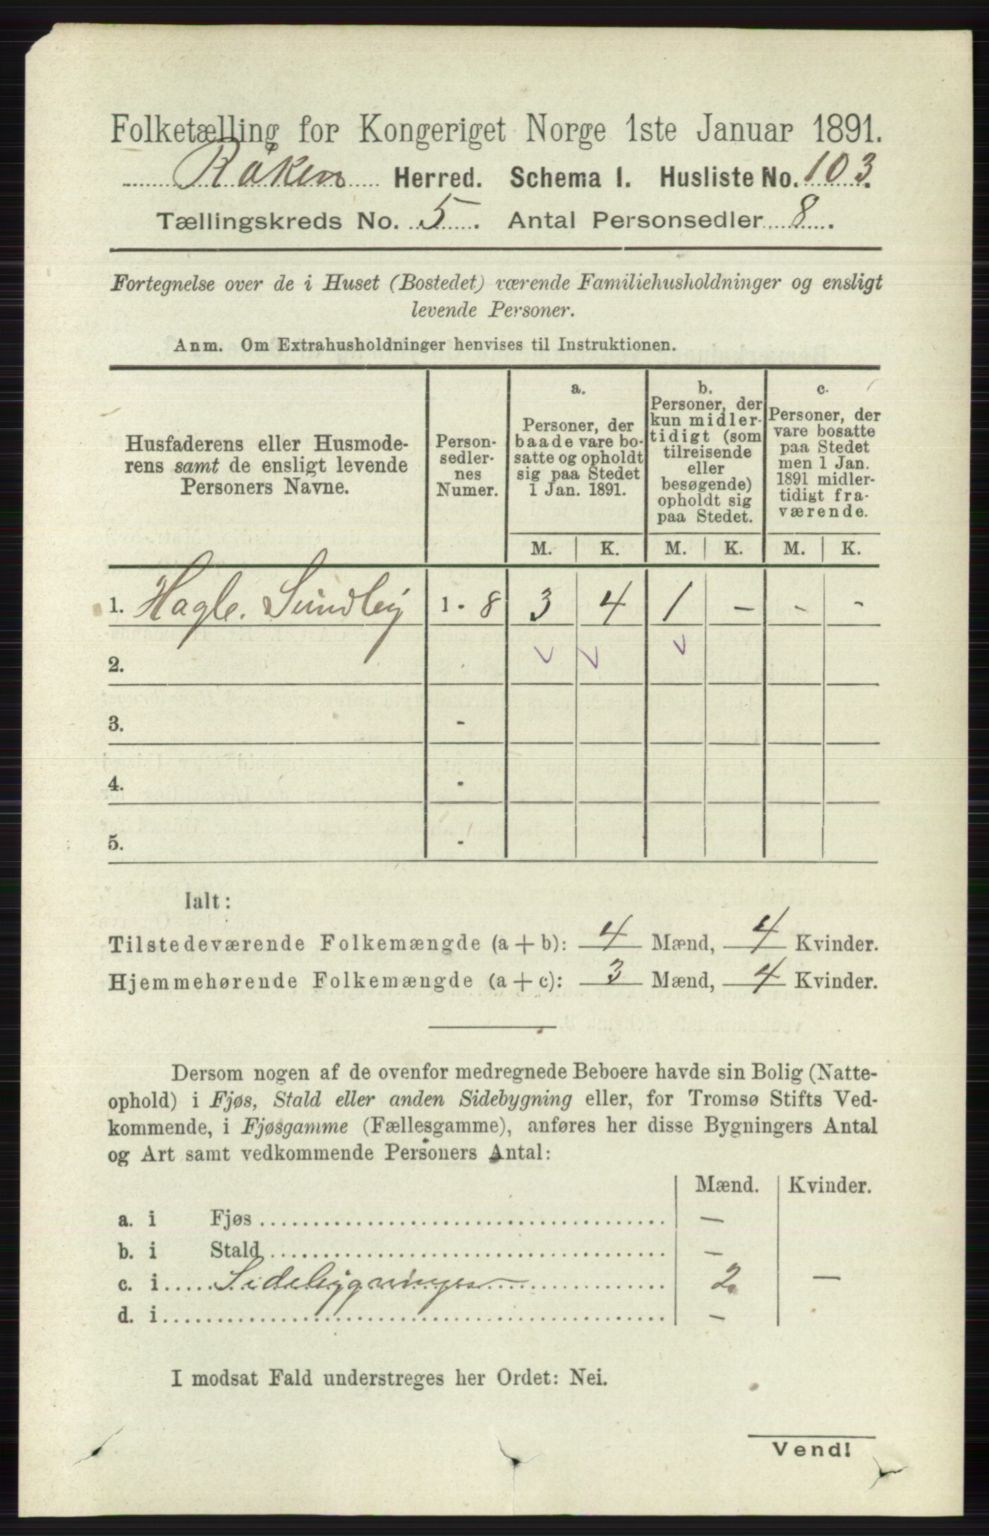 Folketælling for Kongeriget Norge 1ste Januar 1891.
Røken Herred. Schema I. Husliste No. 103.
Tællingskreds No. 5. Antal Personsedler 8.
Fortegnelse over de i Huset (Bostedet) værende Familiehusholdninger og ensligt
levende Personer.
Anm. Om Extrahusholdninger henvises til Instruktionen.
Husfaderens eller Husmode-
rens samt de ensligt levende
Personers Navne.
Person-
sedler-
nes
Numer.
a.
Personer, der
baade vare bo-
satte og opholdt
sig paa Stedet
1 Jan. 1891.
b.
Personer, der
kun midler-
tidigt (som
tilreisende
eller
besøgende)
opholdt sig
paa Stedet.
c.
Personer, der
vare bosatte
paa Stedet
men 1 Jan.
1891 midler-
tidigt fra-
værende.
M. K. M. K. M. K.
1. Hagb. Sundby 1 - 8 3 4 1 - - -
2.
3. -
4. -
5. -
Ialt:
Tilstedeværende Folkemængde (a + b): 4 Mænd, 4 Kvinder.
Hjemmehørende Folkemængde (a + c): 3 Mænd, 4 Kvinder.
Dersom nogen af de ovenfor medregnede Beboere havde sin Bolig (Natte-
ophold) i Fjøs, Stald eller anden Sidebygning eller, for Tromsø Stifts Ved-
kommende, i Fjøsgamme (Fællesgamme), anføres her disse Bygningers Antal
og Art samt vedkommende Personers Antal:
Mænd. Kvinder.
a. i Fjøs —
b. i Stald —
c. i Sidebygninger 2 —
d. i —
I modsat Fald understreges her Ordet: Nei.
Vend!